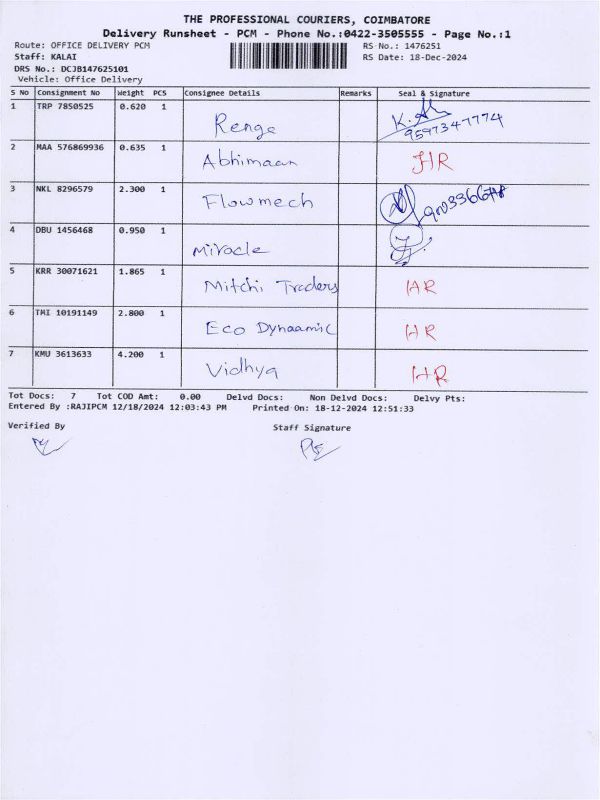 THE PROFESSIONAL COURIERS, COIMBATORE
Delivery Runsheet - PCM - Phone No.:0422-3505555 - Page No.:1
Route: OFFICE DELIVERY PCM RS No.: 1476251
Staff: KALAI RS Date: 18-Dec-2024
DRS No.: DCJB147625101
Vehicle: Office Delivery
S No Consignment No Weight PCS Consignee Details Remarks Seal & Signature
1 TRP 7850525 0.620 1 Renge 9597347774
2 MAA 576869936 0.635 1 Abhimaan HR
3 NKL 8296579 2.300 1 Flowmech
4 DBU 1456468 0.950 1 Miracle
5 KRR 30071621 1.865 1 Mitchi Traders HR
6 TMI 10191149 2.800 1 Eco Dynaamic HR
7 KMU 3613633 4.200 1 Vidhya HR
Tot Docs: 7 Tot COD Amt: 0.00 Delvd Docs: Non Delvd Docs: Delvy Pts:
Entered By :RAJIPCM 12/18/2024 12:03:43 PM Printed On: 18-12-2024 12:51:33
Verified By Staff Signature